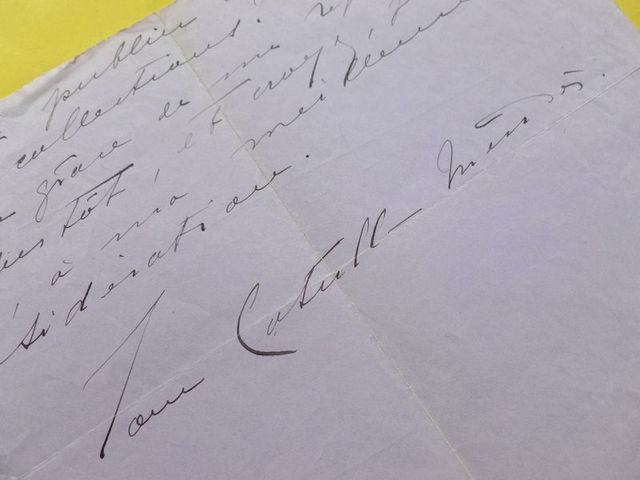 publier
collections.
grâce de me
tôt, et croyez
à ma meilleure
sidération.
Jane Catulle Mendès.